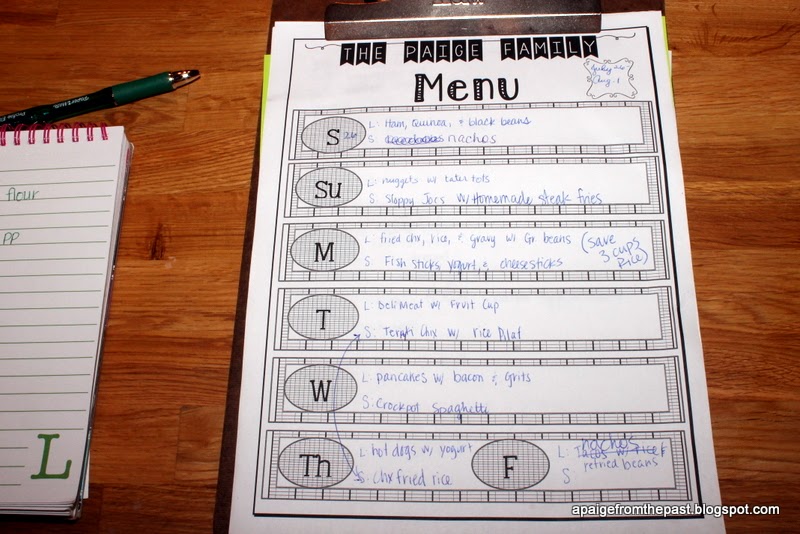 THE PAIGE FAMILY
Menu
July 26
Aug. 1
S 26
L: Ham, Quinoa, & black beans
S: nachos
Su
L: nuggets w/ tater tots
S: Sloppy Joes w/ Homemade steak fries
M
L: fried chx, rice, & Gravy w/ Gr beans (save 3 cups rice)
S: Fish sticks, yogurt, & cheesesticks
T
L: Deli Meat w/ Fruit Cup
S: Teryki Chx w/ rice Pilaf
W
L: pancakes w/ bacon & grits
S: Crockpot Spaghetti
Th
L: hot dogs w/ yogurt
S: Chx fried rice
F
L: nachos
Tacos w/ rice &
refried beans
S
flour
PP
L
apaigefromthepast.blogspot.com